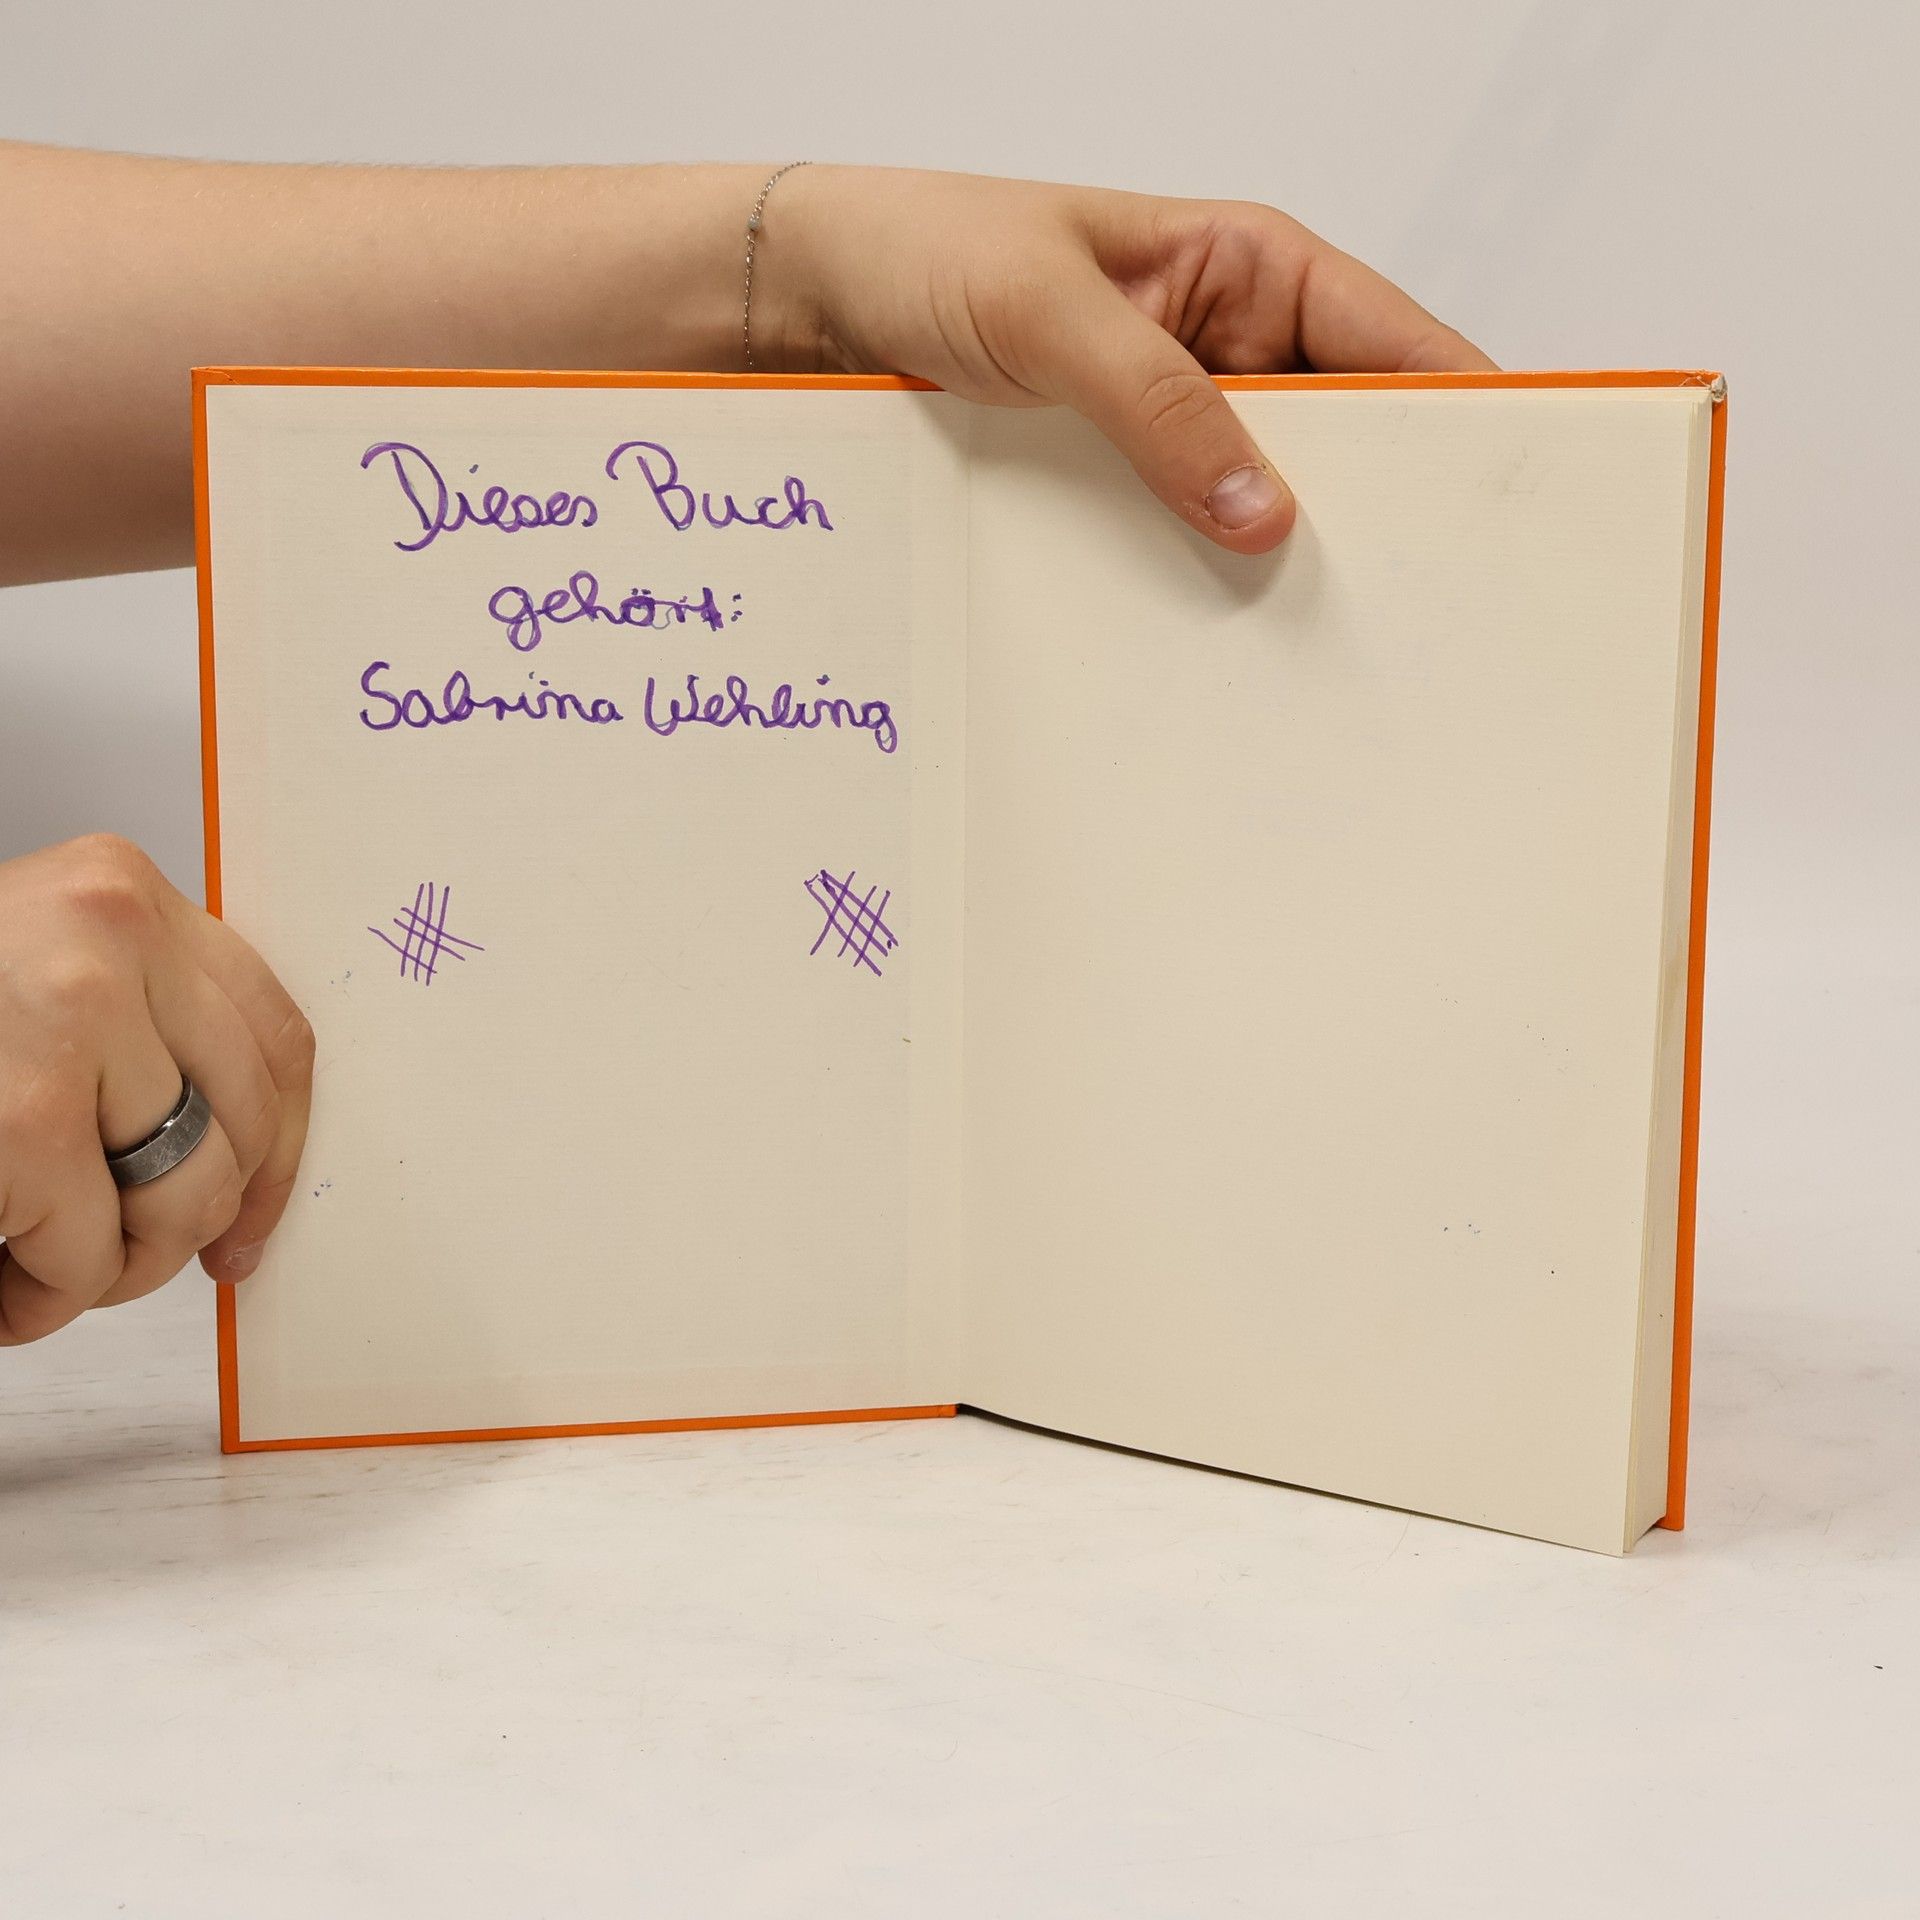 Dieses Buch
gehört:
Sabrina Wehling